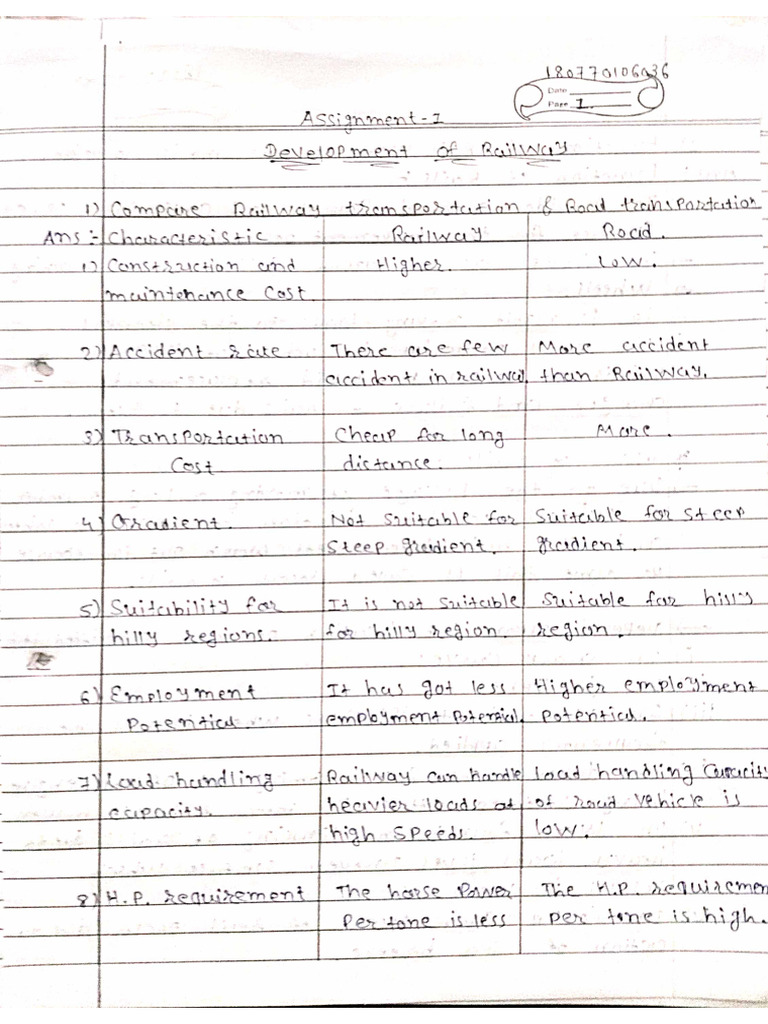 180770106036
Date
Page 1.
Assignment-1
Development of Railway
1) Compare Railway transportation & Road transportation
Ans :- Characteristic Railway Road.
1) Construction and Higher. low.
maintenance Cost.
2) Accident rate. There are few More accident
accident in railway. than Railway.
3) Transportation Cheap for long More.
Cost distance.
4) Gradient. Not suitable for Suitable for steep
steep gradient. gradient.
5) Suitability for It is not suitable suitable for hilly
hilly regions. for hilly region. region.
6) Employment It has got less Higher employment
Potential. employment potential. potential.
7) Load handling Railway can handle load handling capacity
capacity. heavier loads at of road vehicle is
high speeds. low.
8) H.P. requirement The horse power The H.P. requiremen
per tone is less per tone is high.